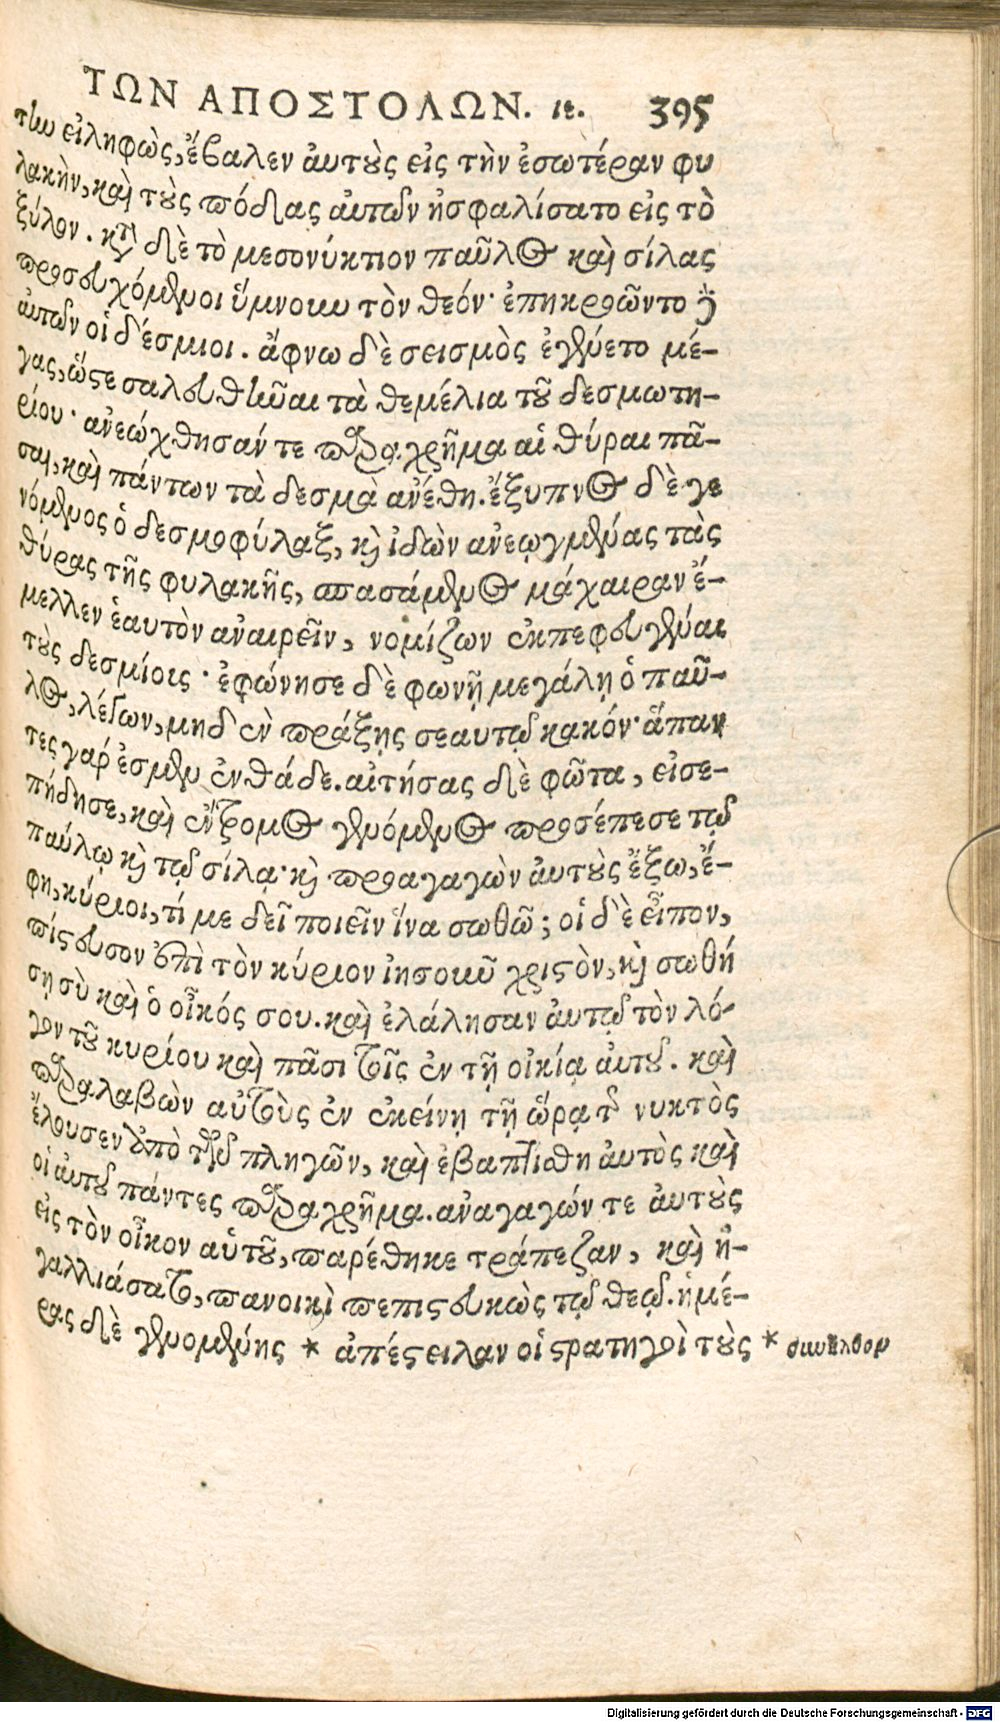 ΤΩΝ ΑΠΟΣΤΟΛΩΝ. ιε. 395
την εἰληφὼς, ἔβαλεν ἀυτοὺς εἰς τὴν ἐσωτέραν φυ
λακὴν, καὶ τοὺς πόδας ἀυτῶν ἠσφαλίσατο εἰς τὸ
ξύλον. κτ̀ δὲ τὸ μεσονύκτιον παῦλος καὶ σίλας
προσευχόμενοι ὕμνουν τὸν θεόν· ἐπηκροῶντο δὲ
ἀυτῶν οἱ δέσμιοι. ἄφνω δὲ σεισμὸς ἐγένετο μέ-
γας, ὥστε σαλευθῆναι τὰ θεμέλια τοῦ δεσμωτη-
ρίου· ἀνεώχθησάν τε παραχρῆμα αἱ θύραι πᾶ-
σαι, καὶ πάντων τὰ δεσμὰ ἀνέθη. ἔξυπνος δὲ γε
νόμενος ὁ δεσμοφύλαξ, καὶ ἰδὼν ἀνεῳγμένας τὰς
θύρας τῆς φυλακῆς, σπασάμενος μάχαιραν ἔ-
μελλεν ἑαυτὸν ἀναιρεῖν, νομίζων ἐκπεφευγέναι
τοὺς δεσμίοις· ἐφώνησε δὲ φωνῇ μεγάλῃ ὁ παῦ-
λος, λέγων, μηδὲν πράξῃς σεαυτῷ κακόν· ἅπαν
τες γάρ ἐσμεν ἐνθάδε. αἰτήσας δὲ φῶτα, εἰσε-
πήδησε, καὶ ἔντρομος γενόμενος προσέπεσε τῷ
παύλῳ καὶ τῷ σίλᾳ· καὶ προαγαγὼν ἀυτοὺς ἔξω, ἔ-
φη, κύριοι, τί με δεῖ ποιεῖν ἵνα σωθῶ; οἱ δὲ εἶπον,
πίστευσον ἐπὶ τὸν κύριον ἰησοῦν χριστὸν, καὶ σωθή
σῃ σὺ καὶ ὁ οἶκός σου. καὶ ἐλάλησαν ἀυτῷ τὸν λό-
γον τοῦ κυρίου καὶ πᾶσι τοῖς ἐν τῇ οἰκίᾳ ἀυτοῦ. καὶ
παραλαβὼν αὐτοὺς ἐν ἐκείνῃ τῇ ὥρᾳ τῆς νυκτὸς
ἔλουσεν ἀπὸ τῶν πληγῶν, καὶ ἐβαπτίσθη ἀυτὸς καὶ
οἱ ἀυτοῦ πάντες παραχρῆμα. ἀναγαγών τε ἀυτοὺς
εἰς τὸν οἶκον αὑτοῦ, παρέθηκε τράπεζαν, καὶ ἠ-
γαλλιάσατο, πανοικὶ πεπιστευκὼς τῷ θεῷ. ἡμέ-
ρας δὲ γενομένης * ἀπέστειλαν οἱ στρατηγοὶ τοὺς * συνῆλθον
Digitalisierung gefördert durch die Deutsche Forschungsgemeinschaft - DFG